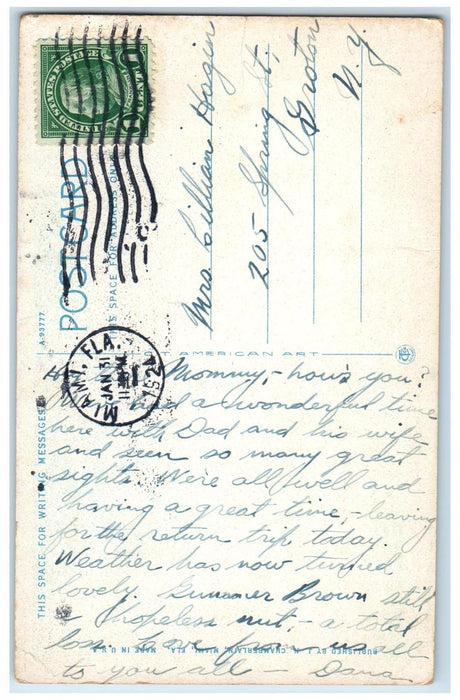 UNITED STATES POSTAGE
POST CARD
THIS SPACE FOR ADDRESS ONLY
A-93777
Mrs. Lillian Hagin
205 Spring St.
Groton
N.Y.
MIAMI, FLA.
JAN 31
192
AMERICAN ART
THIS SPACE FOR WRITING MESSAGES
Mommy,- how's you?
had a wonderful time
here with Dad and his wife
and seen so many great
sights. Were all well and
having a great time,- leaving
for the return trip today.
Weather has now turned
lovely. Brown still
a hopeless nut,- a total
loss. Love from us all
to you all Dana
PUBLISHED BY J. N. CHAMBERLAIN, MIAMI, FLA. MADE IN U.S.A.